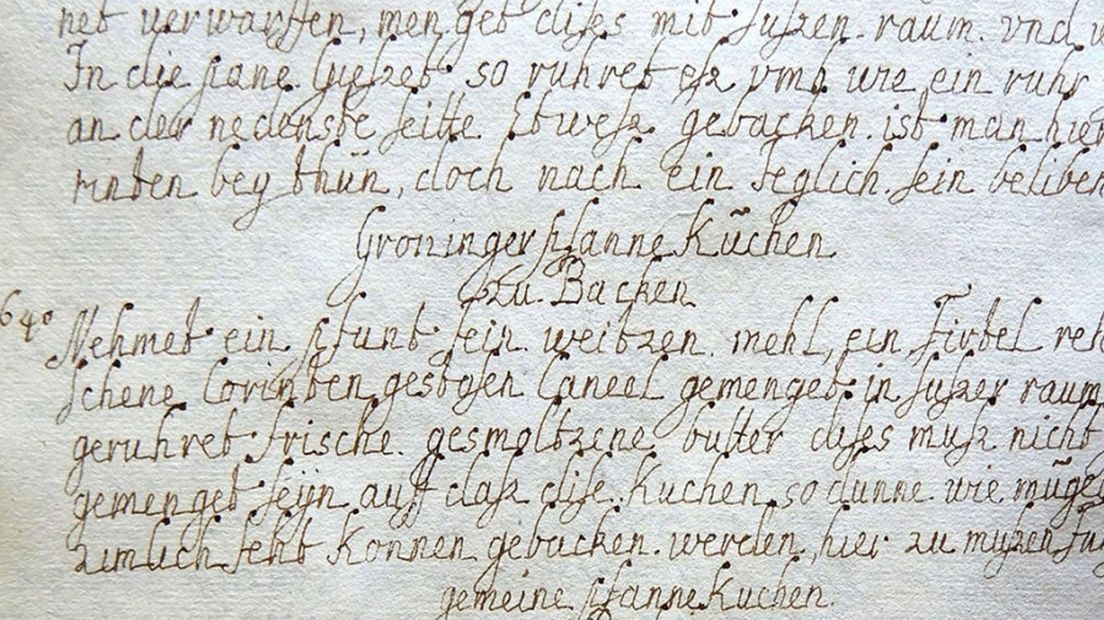 net verwarffen, men get dises mit suszen. raum. vnd
In die pane. Gieszet. so ruhret esz vmb wie ein ruhr
an der nedenste seitte. Etwesz gebacken. ist. man hier
rinten bey thün, doch nach ein jeglich. sein beliben
Groninger pfanne Küchen
zu. Backen
640 Nehmet ein pfunt fein. weitzen. mehl, ein Firtel
schene Corinten gestosen Caneel gemenget. in suszer raum
geruhret frische. gesmoltzene butter dises musz nicht
gemenget seÿn auff dasz dise. Kuchen so dunne wie müge
zimlich feht Konnen gebacken. werden, hier zu muszen
gemeine pfanne Kuchen.